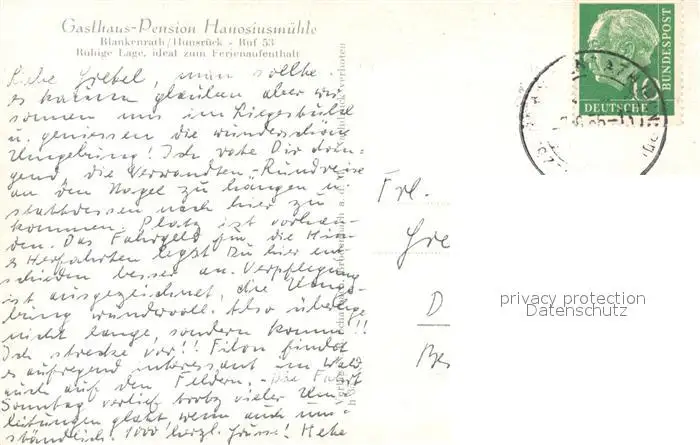 Gasthaus-Pension Hanosiusmühle
Blankenrath/Hunsrück - Ruf 53
Ruhige Lage, ideal zum Ferienaufenthalt
Liebe Gretel, man sollte
es kaum glauben aber wir
sonnen uns im Liegestuhl
u. geniessen die wunderschöne
Umgebung! Ich rate Dir drin-
gend, die Verwandten-Rundreise
an den Nagel zu hängen u.
stattdessen noch hier zu
kommen. Platz ist vorhan-
den. Das Fahrgeld für die Hin-
u. Herfahrten legst Du hier ent-
schieden besser an. Verpflegung
ist ausgezeichnet, die Umge-
bung wundervoll. Also überlege
nicht lange, sondern komm!!!
Ich strecke vor!! Filou findet
es aufregend interessant im Wald
auch auf den Feldern. - Die Fahrt
Sonntag verlief trotz vieler Um-
leitungen glatt wenn auch um-
ständlich. 1000 herzl. Grüsse!
Frl.
Gre
D
Be
10
DEUTSCHE
BUNDESPOST
privacy protection
Datenschutz